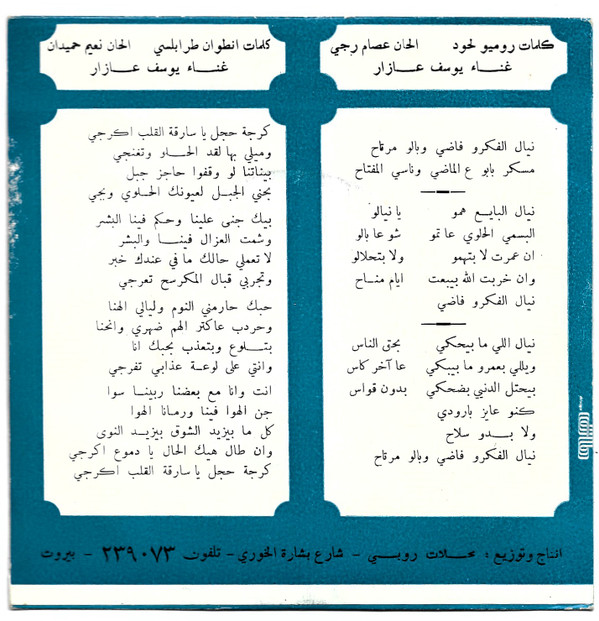 كلمات روميو لحود الحان عصام رجي
غناء يوسف عازار
نيال الفكرو فاضي وبالو مرتاح
مسكر بابو ع الماضي وناسي المفتاح
نيال البايع همو يا نيالو
البسمي الحلوي عا تمو شو عا بالو
ان عمرت لا بتهمو ولا بتحلالو
وان خربت الله بيبعت ايام منـاح
نيال الفكرو فاضي
نيال اللي ما بيحكي بحق الناس
ويللي بعمرو ما بيبكي عا آخر كاس
بيحتل الدنيي بضحكي بدون قواس
كنو عايز بارودي
ولا بـدو سلاح
نيال الفكرو فاضي وبالو مرتاح
كلمات انطوان طرابلسي الحان نعيم حميدان
غناء يوسف عازار
كرجة حجل يا سارقة القلب اكرجي
وميلي بها لقد الحلو وتغنجي
بيناتنا لو وقفوا حاجز جبل
بجني الجبل لعيونك الحلوي وبجي
بيك جنى علينا وحكم فينا البشر
وشمت العزال فينا والبشر
لا تعملي حالك ما في عندك خبر
وتجربي قبال المكرسح تعرجي
حبك حارمني النوم وليالي الهنا
وحردب عاكتر الهم ضهري وانحنا
بتلوع وبتعذب بحبك انا
وانتي على لوعة عذابي تفرجي
انت وانا مع بعضنا ربينا سوا
جن الهوا فينا ورمانا الهوا
كل ما بيزيد الشوق بيزيد النوى
وان طال هيك الحال يا دموع اكرجي
كرجة حجل يا سارقة القلب اكرجي
انتاج وتوزيع : محلات روبي - شارع بشارة الخوري - تلفون ٢٣٩٠٧٣ - بيروت